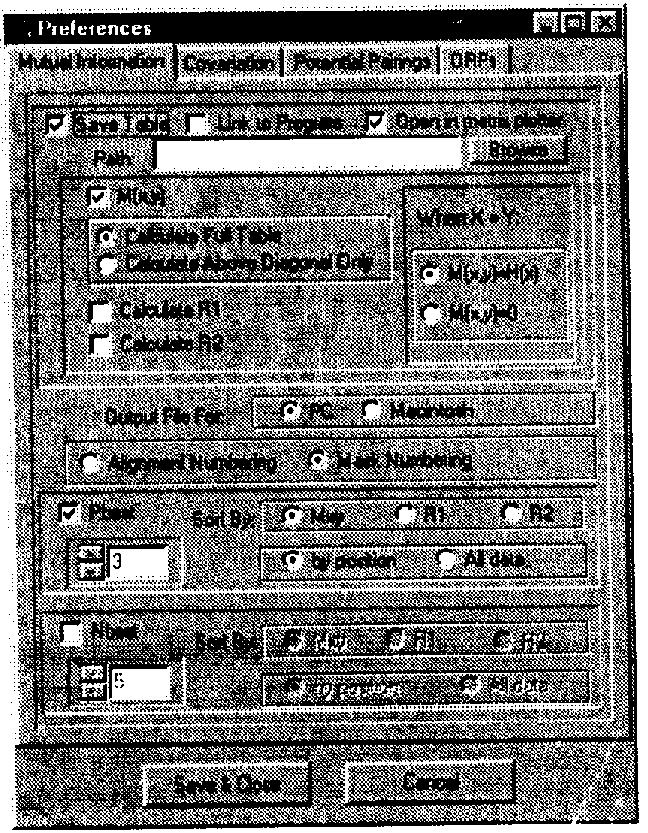 Preferences
Mutual Information Covariation Potential Pairings ORFs
Save Table Link to Program Open in metric plotter
Path: Browse
M(x,y) When X = Y:
Calculate Full Table
Calculate Above Diagonal Only M(x,y)=H(x)
Calculate R1 M(x,y)=0
Calculate R2
Output File For: PC Macintosh
Alignment Numbering Mask Numbering
Sort By: Map R1 R2
3 by position All data
Sort By: R1
5 by position All data
Save & Close Cancel